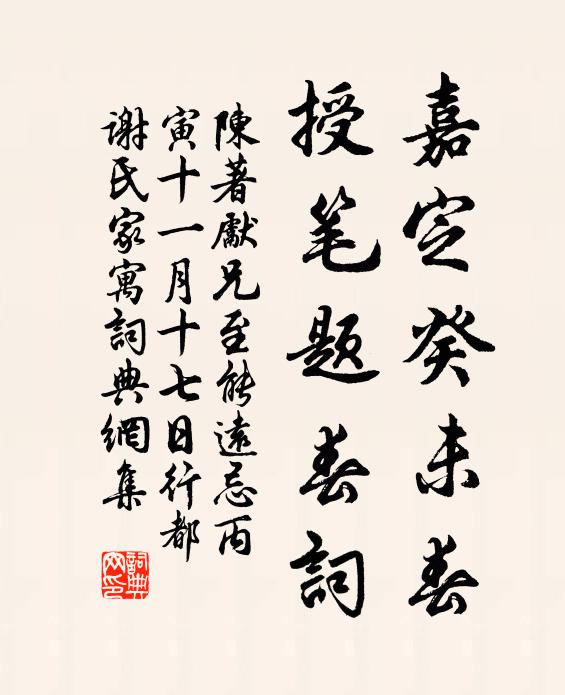 嘉定癸未春
授笔题春詞
陳著獻兄至能遠忌丙
寅十一月十七日行都
謝氏家寓詞典網集
詞典
网印